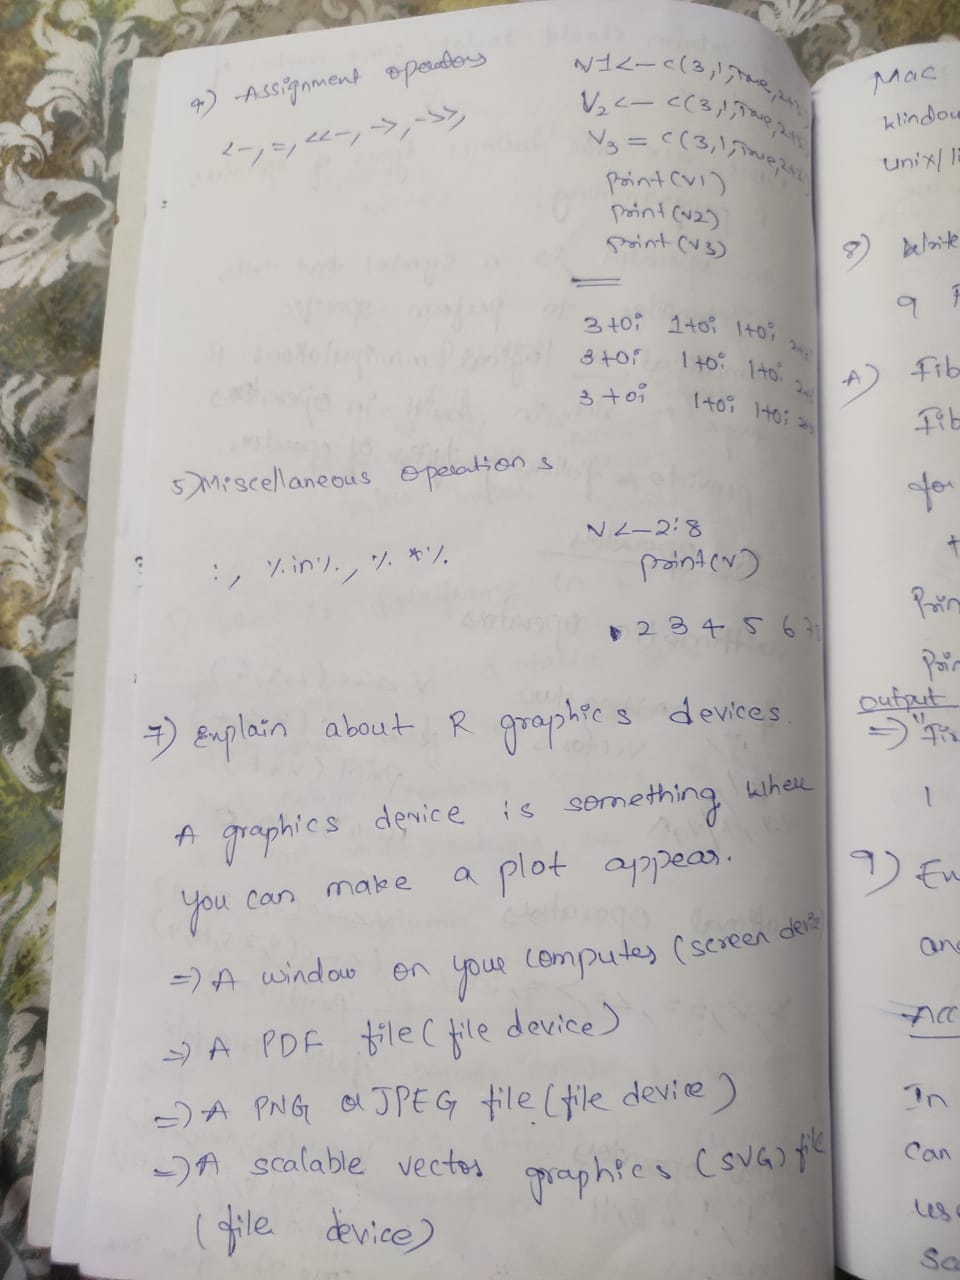 4) Assignment operators
<-, =, <<-, ->, ->>,
V1 <- c(3,1,True,2+3i)
V2 <- c(3,1,True,2+3i)
V3 = c(3,1,True,2+3i)
print(v1)
print(v2)
print(v3)
3+0i 1+0i 1+0i
3+0i 1+0i 1+0i
3+0i 1+0i 1+0i
5) Miscellaneous operations
:, %in%, %*%.
V <- 2:8
print(v)
2 3 4 5 6 7
7) Explain about R graphics devices.
A graphics device is something where
you can make a plot appear.
=) A window on your computer (screen device
=) A PDF file (file device)
=) A PNG or JPEG file (file device)
=) A scalable vector graphics (SVG) file
(file device)
Mac
unix/li
8) Write
a
A) Fib
Fib
for
Prin
Prin
output
=) "Fi
1
9) En
and
Acc
In
can
use
Sc